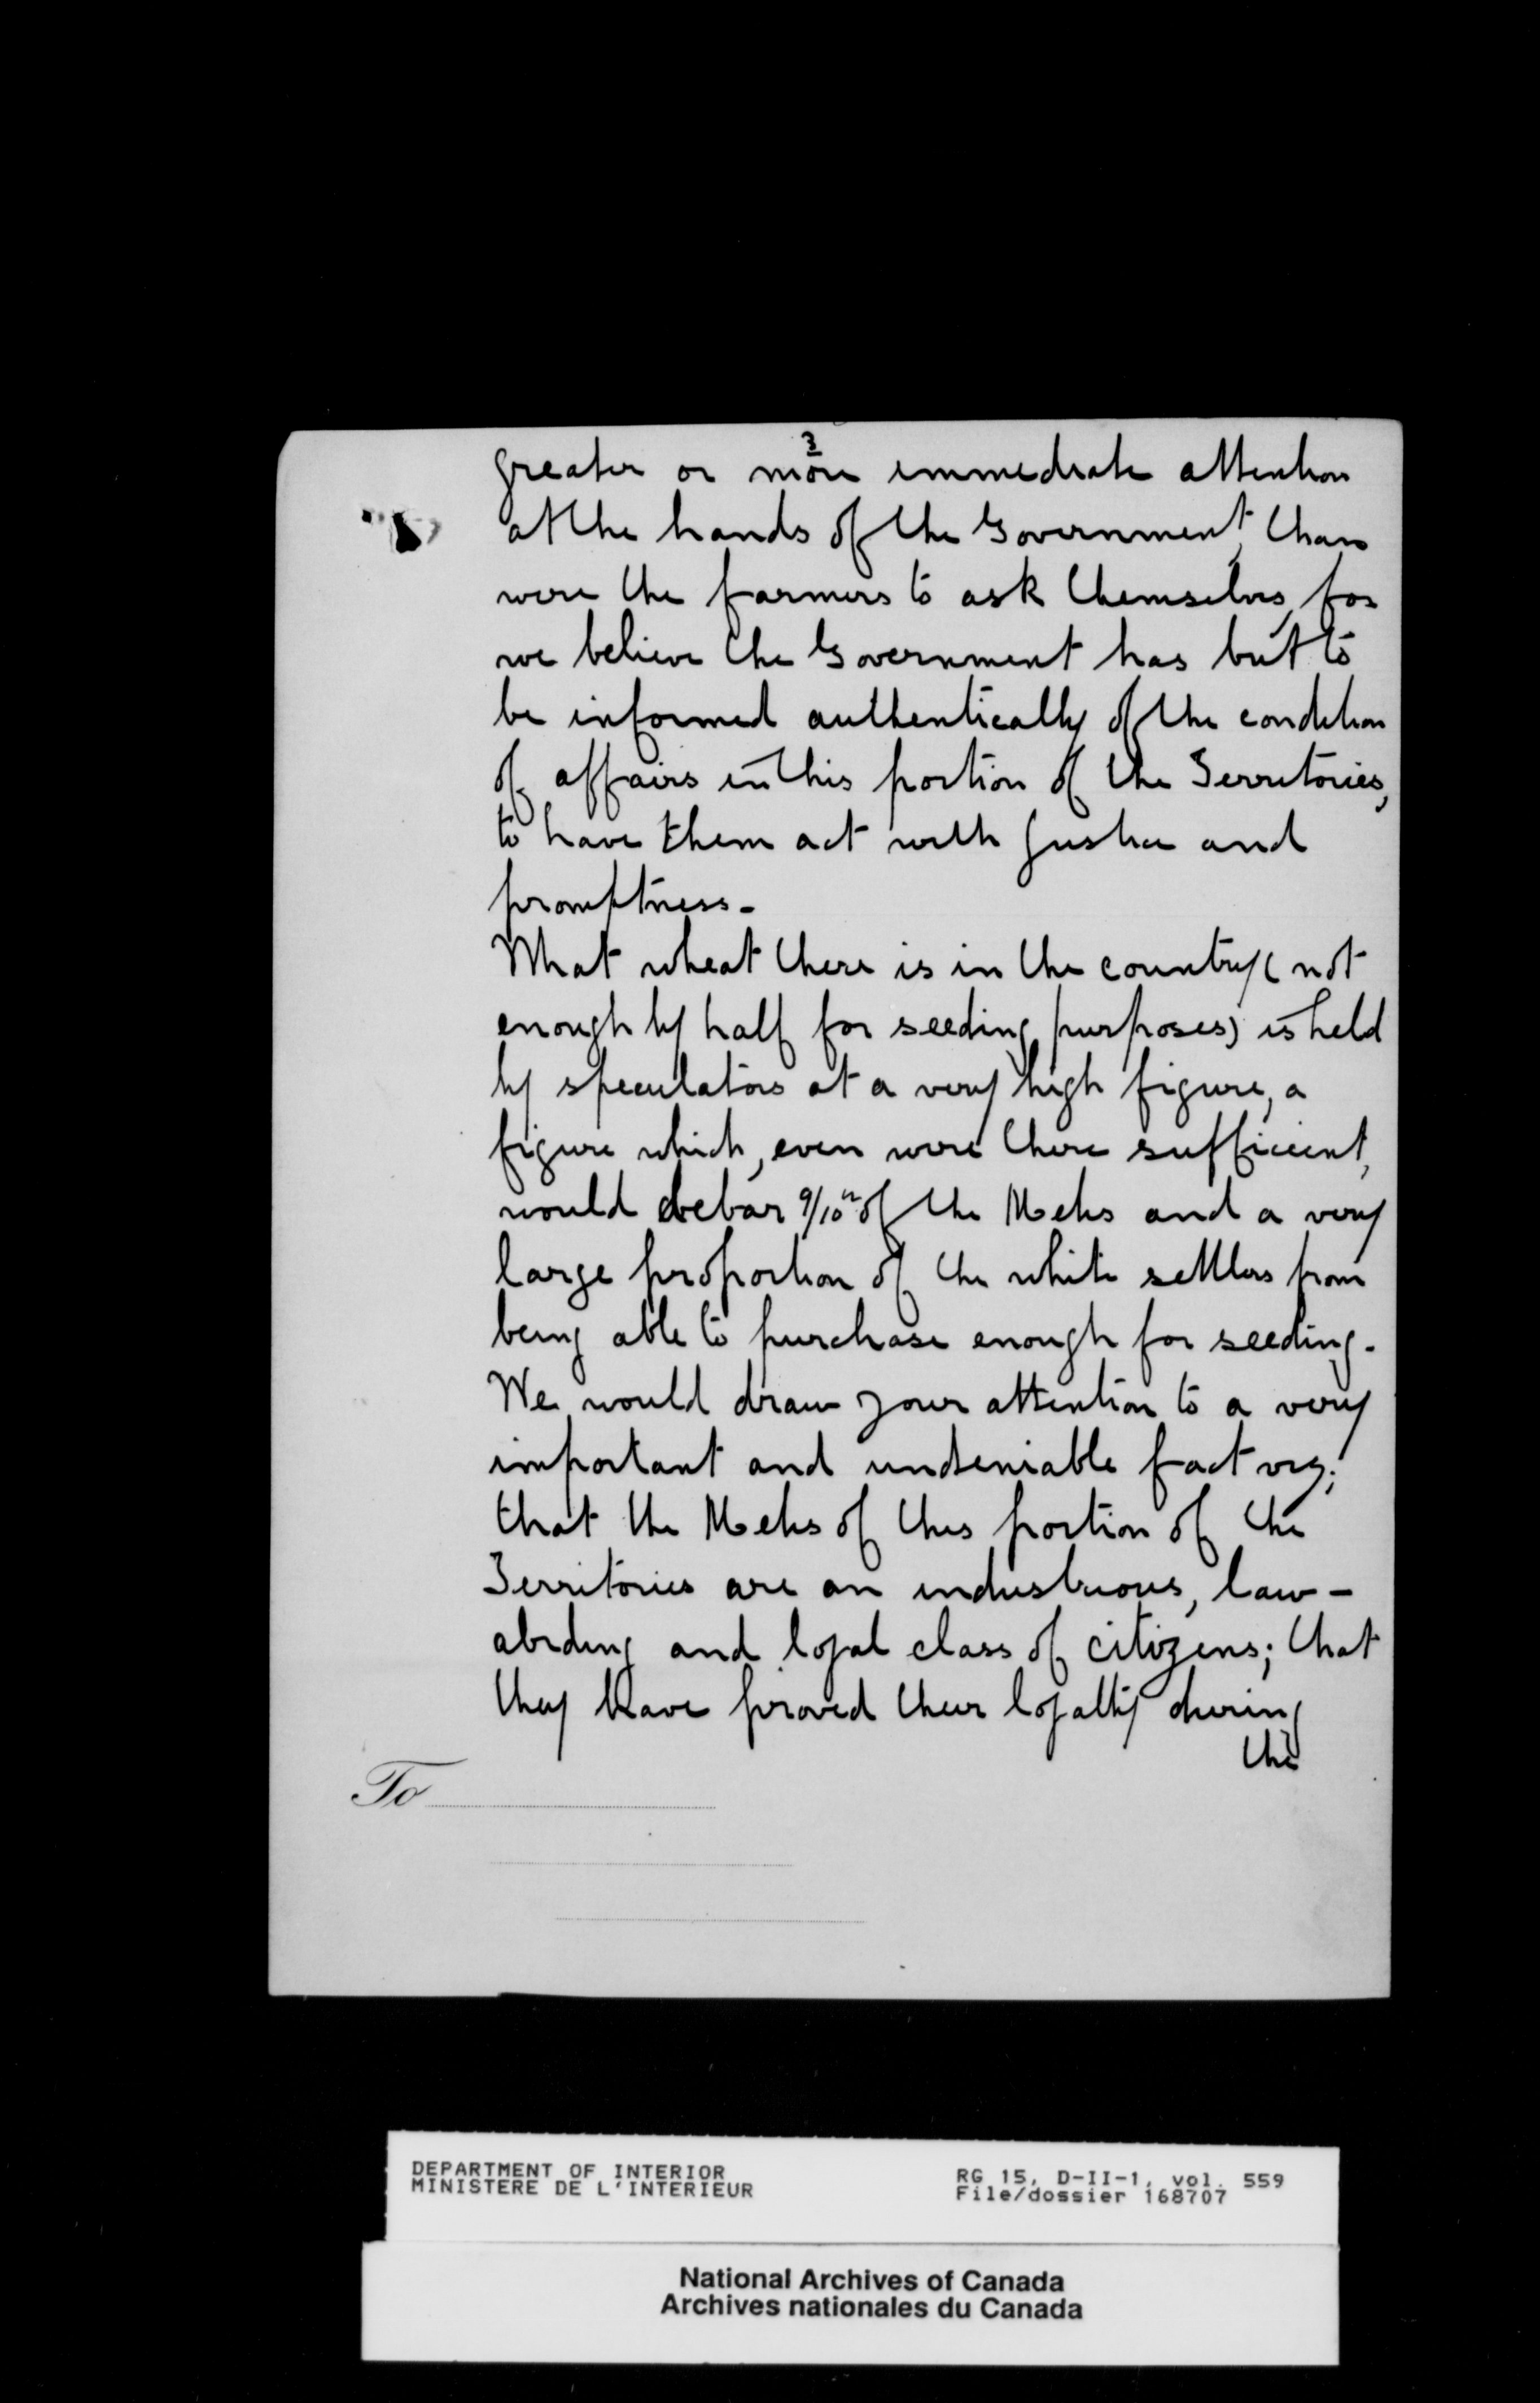 3
greater or more immediate attention
at the hands of the Government, than
were the farmers to ask themselves, for
we believe the Government has but to
be informed authentically of the condition
of affairs in this portion of the Territories,
to have them act with justice and
promptness-
What wheat there is in the country (not
enough by half for seeding purposes) is held
by speculators at a very high figure, a
figure which, even were there sufficient,
would debar 9/10th of the Metis and a very
large proportion of the white settlers from
being able to purchase enough for seeding.
We would draw your attention to a very
important and undeniable fact viz;
that the Metis of this portion of the
Territories are an industrious, law-
abiding and loyal class of citizens; that
they have proved their loyalty during
the
To
DEPARTMENT OF INTERIOR
MINISTERE DE L'INTERIEUR
RG 15, D-II-1, vol. 559
File/dossier 168707
National Archives of Canada
Archives nationales du Canada